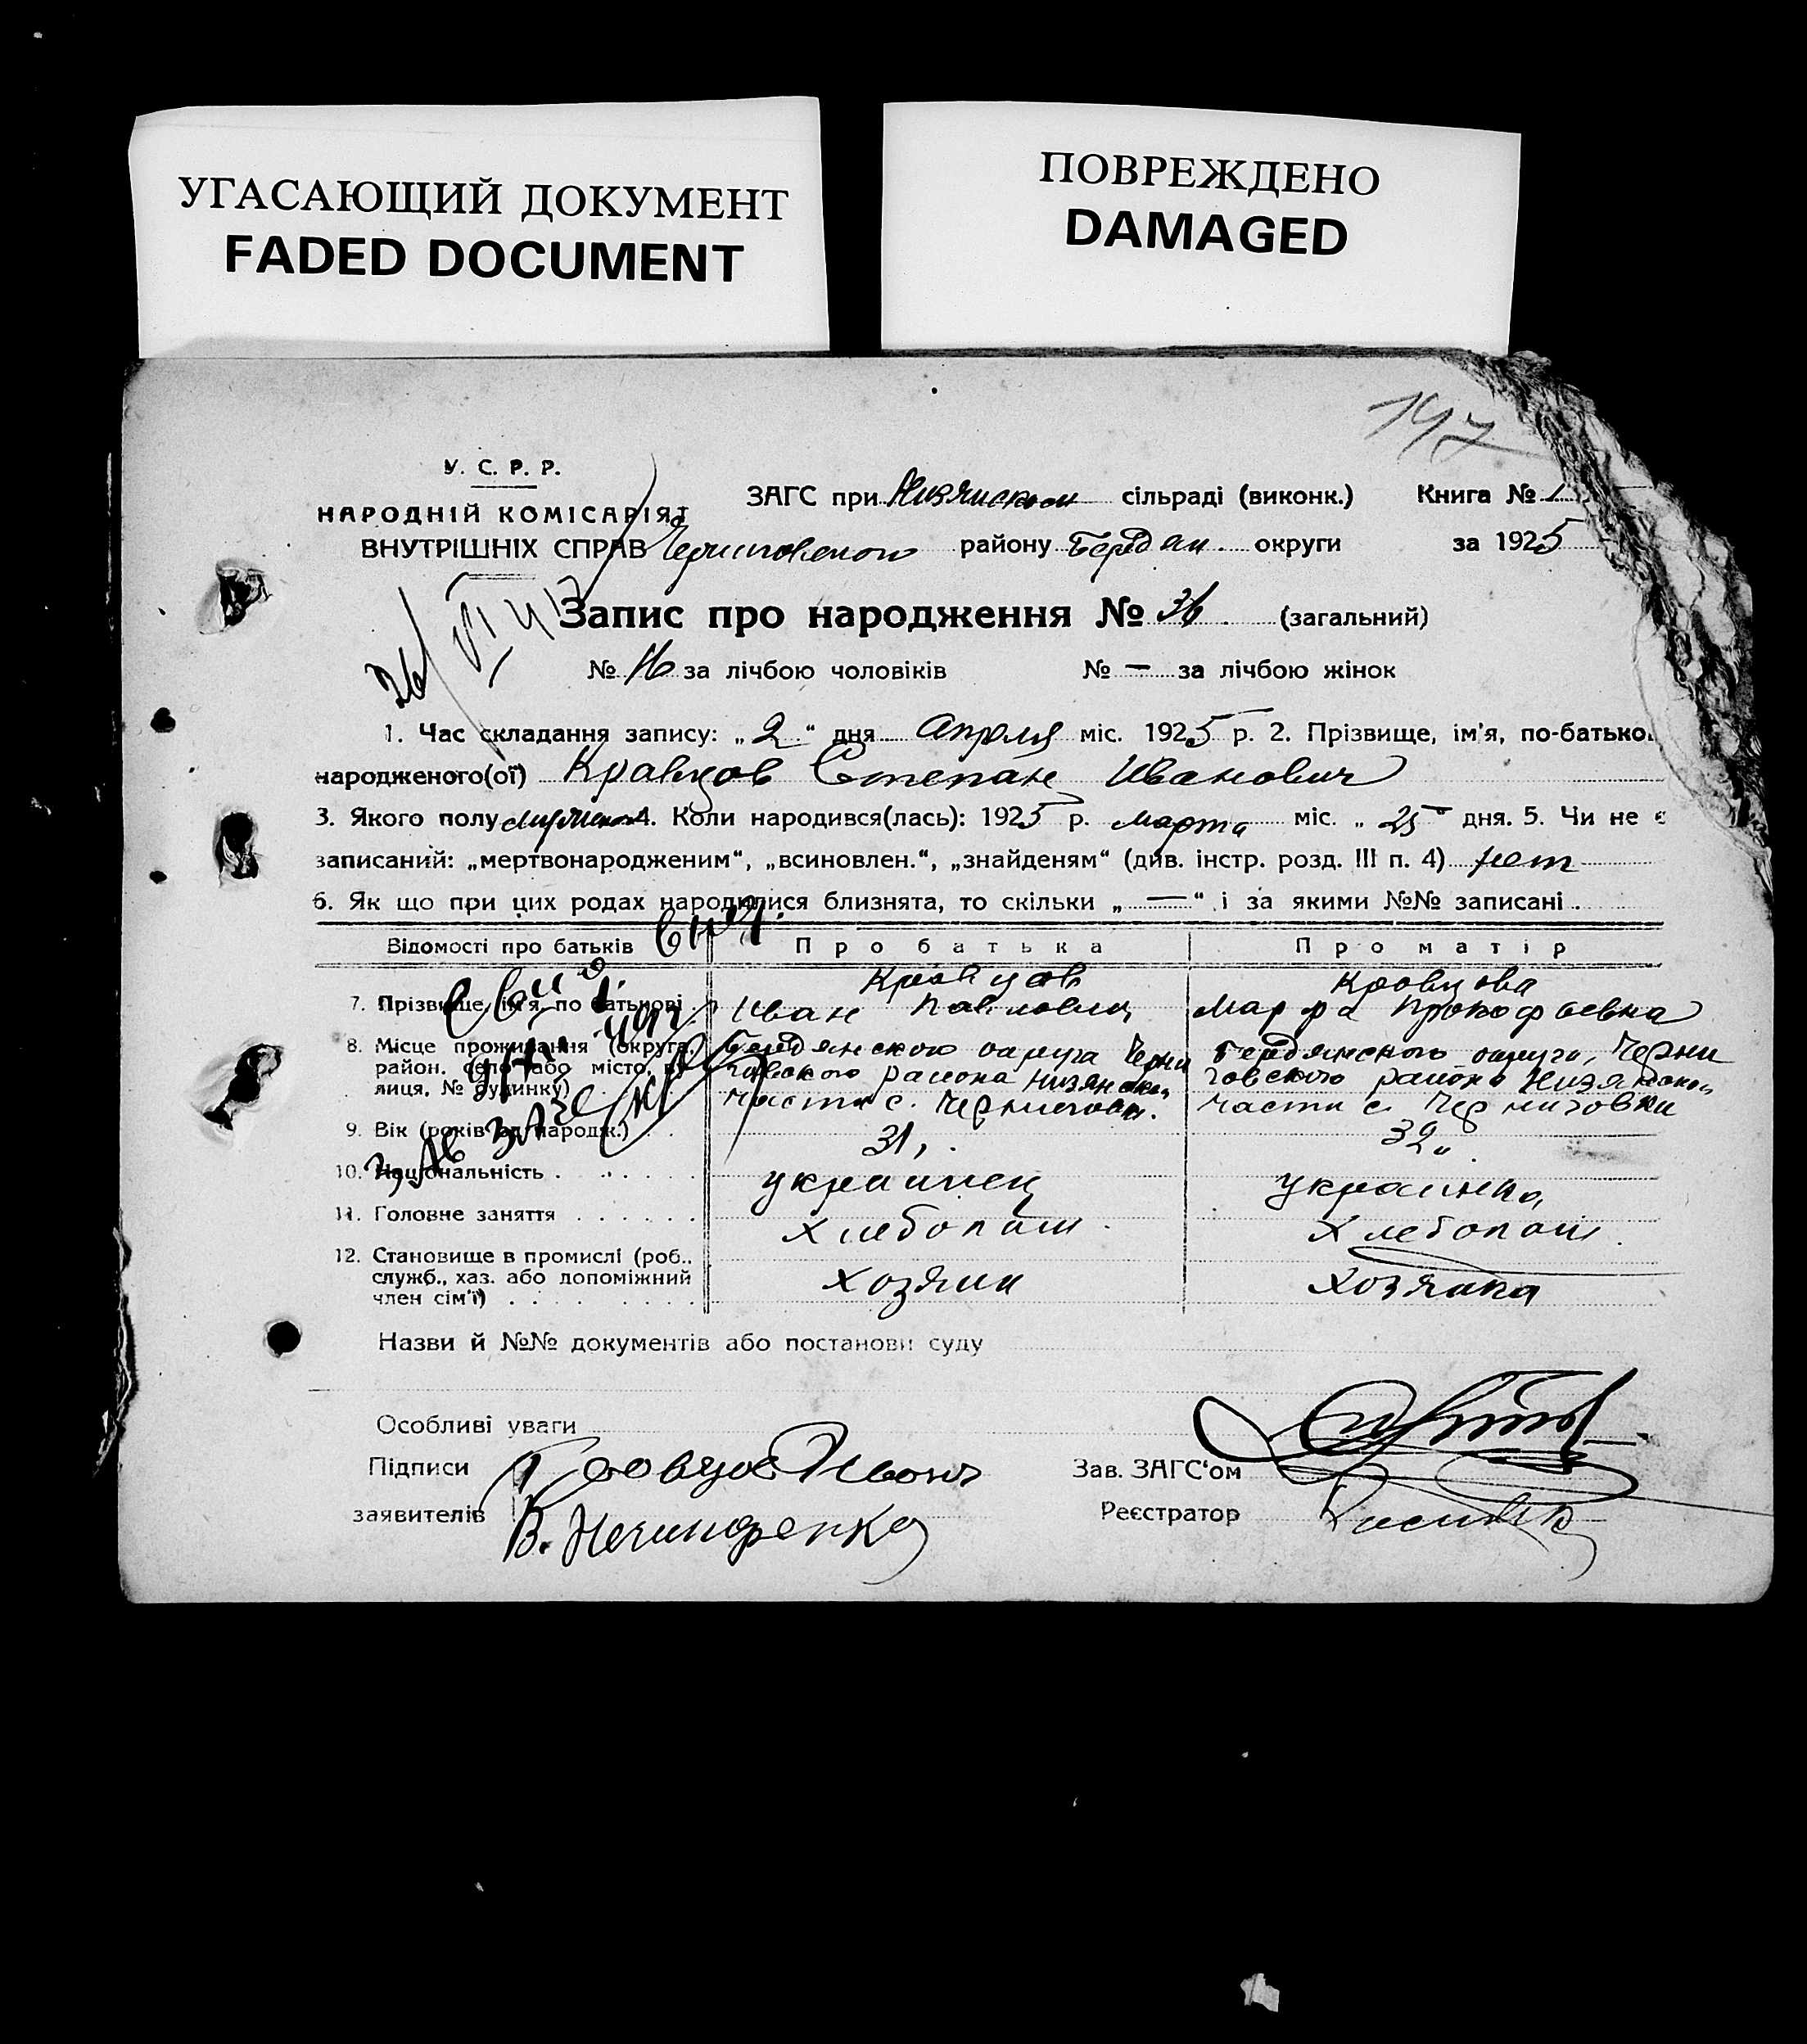 УГАСАЮЩИЙ ДОКУМЕНТ
FADED DOCUMENT
ПОВРЕЖДЕНО
DAMAGED
147
У. С. Р. Р.
НАРОДНІЙ КОМІСАРІЯТ
ВНУТРІШНІХ СПРАВ
ЗАГС при Низянском сільраді (виконк.) Книга № 1
Черниговского району Бердян. округи за 1925
Запис про народження № 36 (загальний)
№ 16 за лічбою чоловіків № — за лічбою жінок
1. Час складання запису: „2“ дня апреля міс. 1925 р. 2. Прізвище, ім'я, по-батько
народженого(ої) Кравцов Степан Иванович
3. Якого полу мужеск 4. Коли народився(лась): 1925 р. марта міс. „25 дня. 5. Чи не є
записаний: „мертвонародженим“, „всиновлен.“, „знайденям“ (див. інстр. розд. III п. 4) нет
6. Як що при цих родах народилися близнята, то скільки „—“ і за якими №№ записані .
Відомості про батьків Про батька Про матір
7. Прізвище, ім'я, по батькові Кравцов Иван Павлович Кровцова Марфа Прокофьевна
8. Місце проживання (округа, район. село або місто, вулиця, № будинку) Бердянского округа Черниговского района Низянской части с. Черниговки. Бердянского округа, Черниговского района Низянской части с. Черниговки
9. Вік (років од народж.) 31, 32
10. Національність украинец украинка
11. Головне заняття хлебопаш. хлебопаш.
12. Становище в промислі (роб., служб., хаз. або допоміжний член сім'ї) хозяин хозяйка
Назви й №№ документів або постанови суду
Особливі уваги
Підписи Кровцов Иван Зав. ЗАГС'ом
заявителів В. Реєстратор